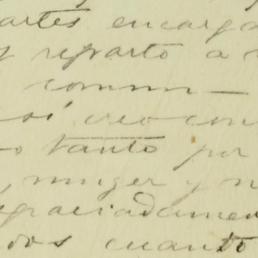 artes encarg
y reparto a
comun-
si creo con
o tanto por
muger y n
graciadamen
dos cuanto